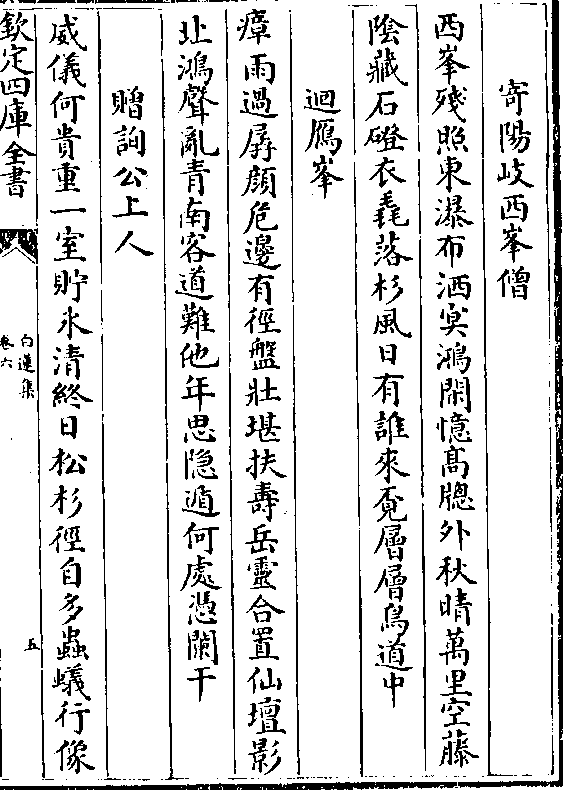 寄陽岐西峯僧
西峯殘照東瀑布洒冥鴻閑憶髙牕外秋晴萬里空藤
陰藏石磴衣毳落杉風日有誰來覔層層鳥道中
迴鴈峯
瘴雨過孱顔危邊有徑盤壯堪扶壽岳靈合置仙壇影
北鴻聲亂青南客道難他年思隠遁何處憑闌干
贈詢公上人
威儀何貴重一室貯氷清終日松杉徑自多蟲蟻行像
欽定四庫全書
白蓮集
卷六
五